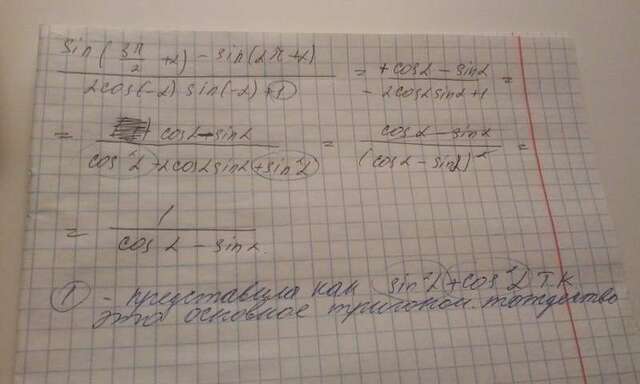 sin(3π/2 + α) - sin(2π + α) / 2cos(-α) sin(-α) + 1 = + cos α - sin α / - 2cos α sin α + 1 =
= cos α - sin α / cos²α - 2cos α sin α + sin²α = cos α - sin α / (cos α - sin α)² =
= 1 / cos α - sin α
1 - представила как sin²α + cos²α т.к
это основное тригоном. тождество